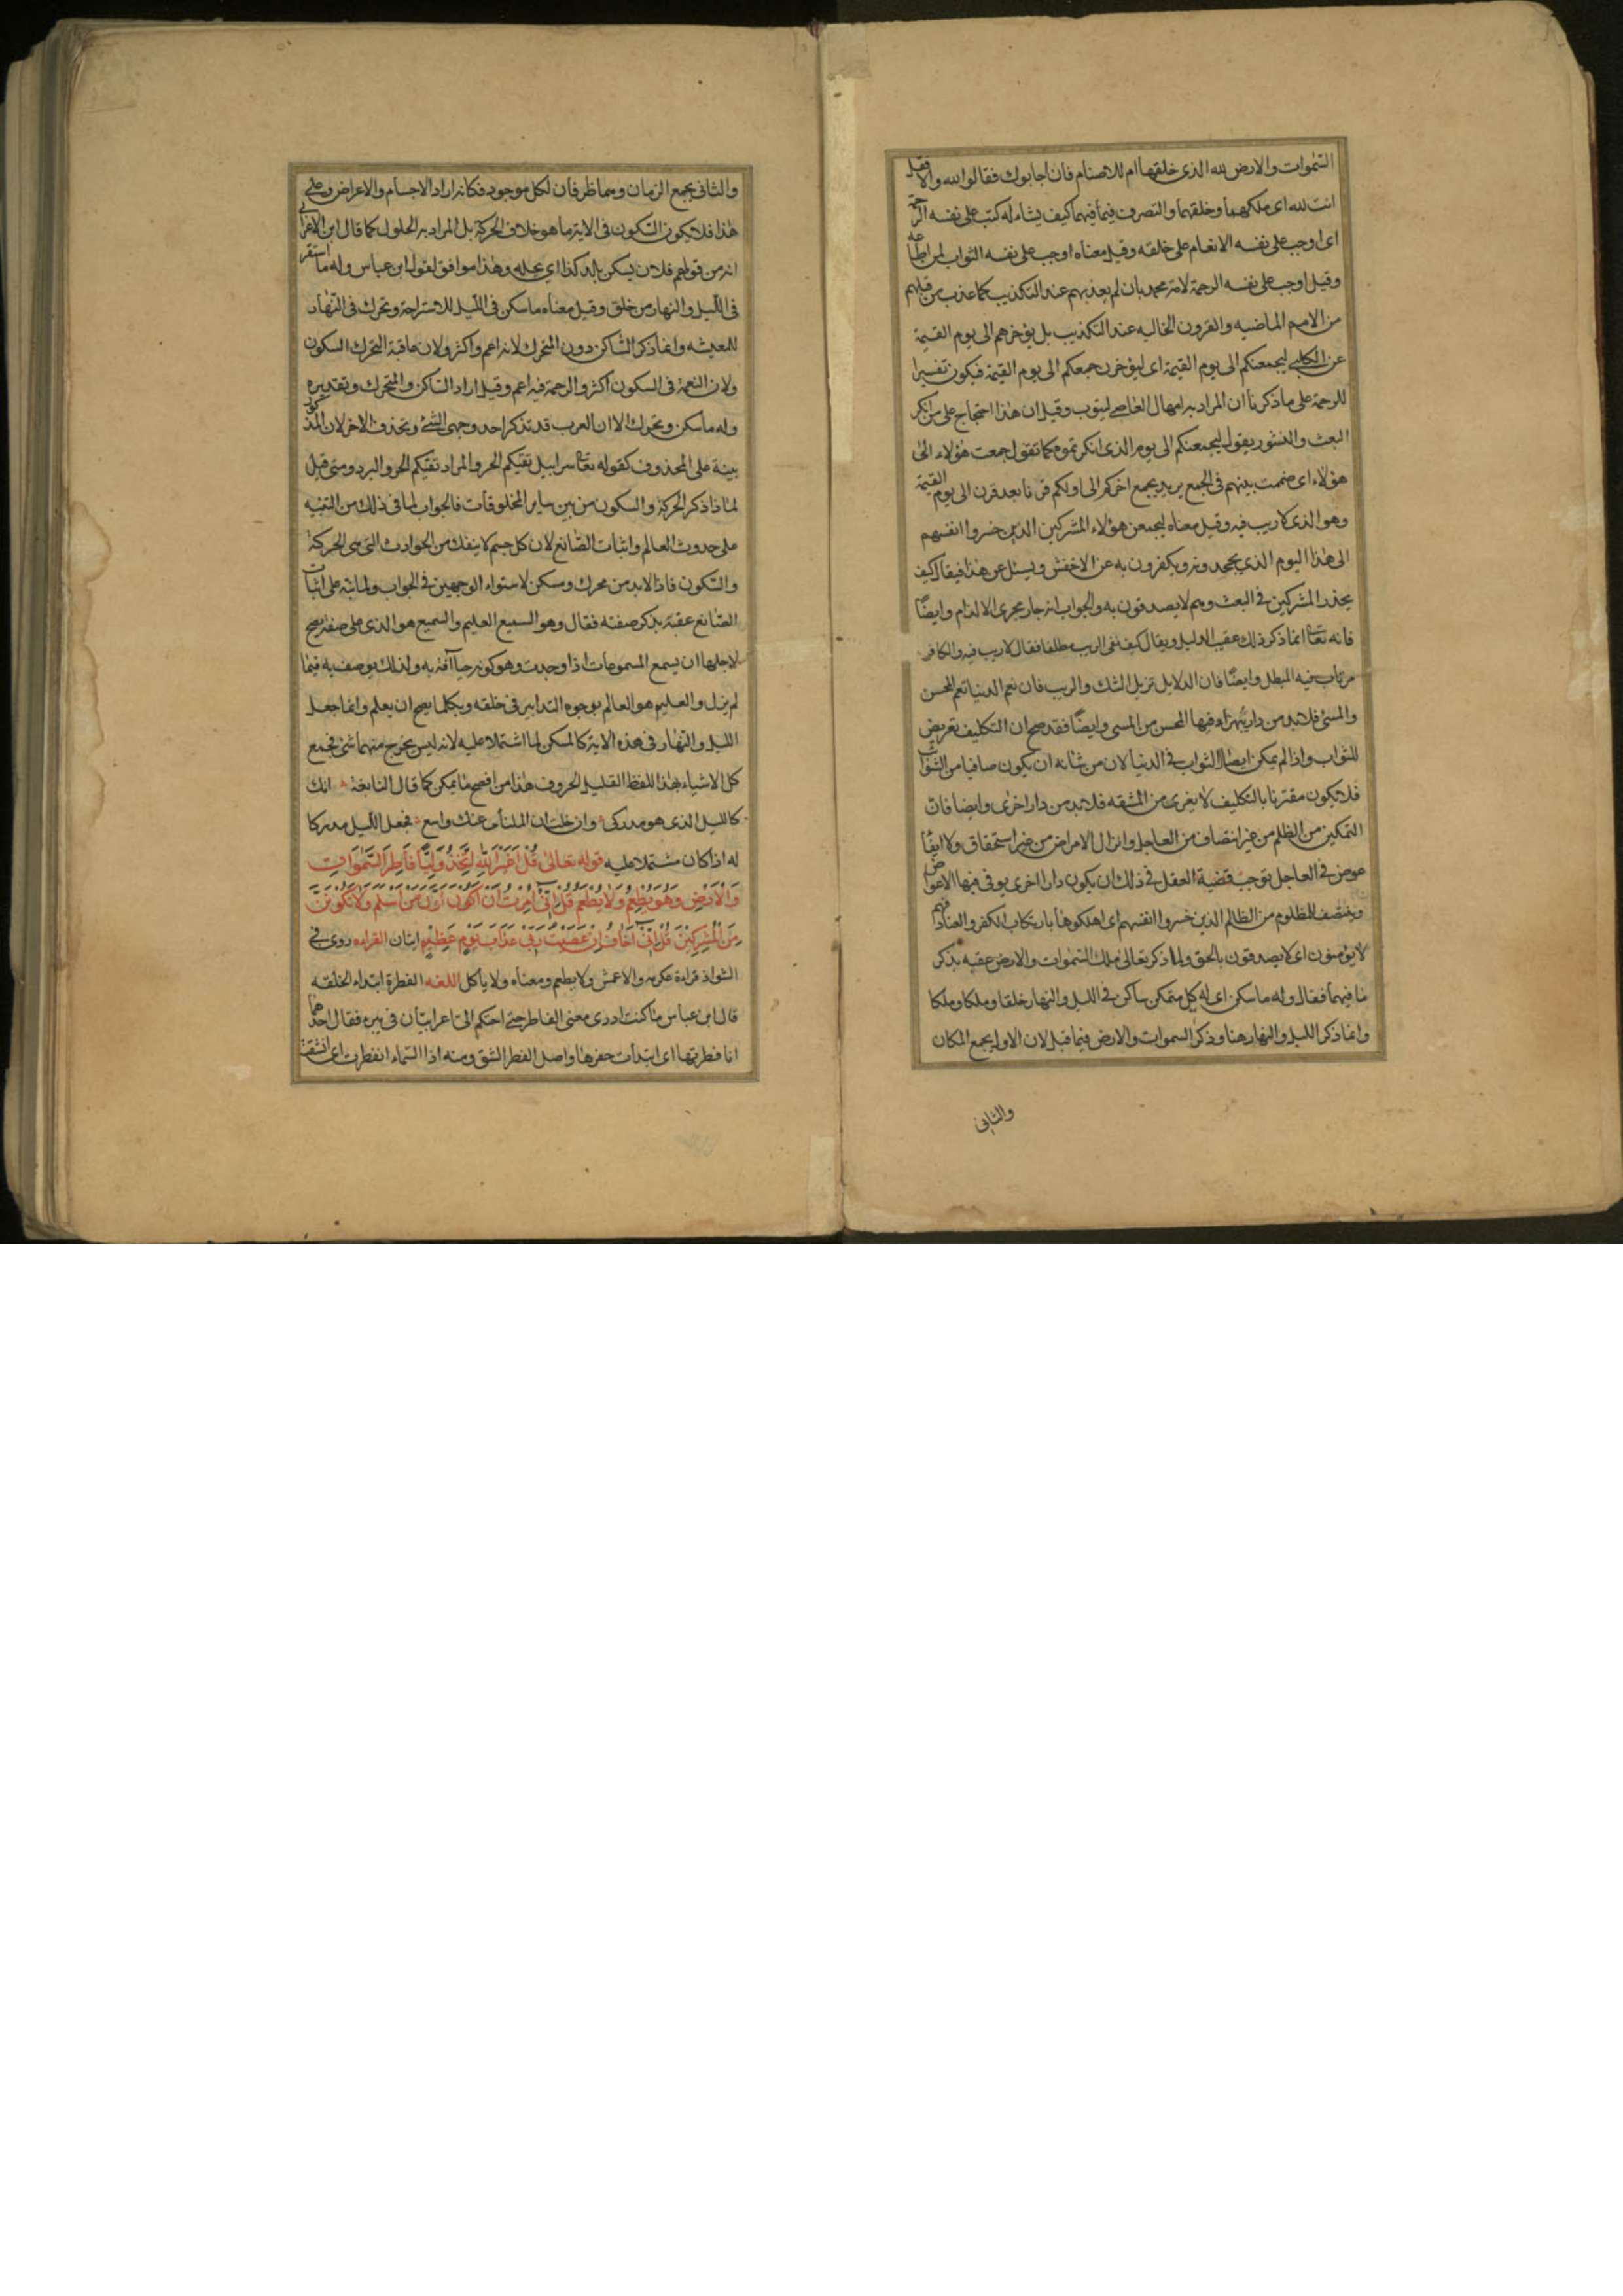 السموات والارض لله الذى خلقها ام للاصنام فان اجابوك فقالوا الله والا فقل
انت لله اى ملكهما وخلقهما والتصرف فيما فيهما كيف يشاء له كتب على نفسه الرحمة
اى اوجب على نفسه الانعام على خلقه وقيل معناه اوجب على نفسه الثواب لمن اطاعه
وقيل اوجب على نفسه الرحمة لامة محمد بان لم يعذبهم عند التكذيب كما عذب من قبلهم
من الامم الماضيه والقرون الخاليه عند التكذيب بل يؤخرهم الى يوم القيمة
عن الكلبى ليجمعنكم الى يوم القيمة اى ليؤخرن جمعكم الى يوم القيمة فيكون تفسيرا
للرحمة على ما ذكرنا ان المراد به امهال العاصى ليتوب وقيل ان هذا احتجاج على من انكر
البعث والنشور يقول ليجمعنكم الى يوم الذى انكرتموه كما تقول جمعت هؤلاء الى
هؤلاء اى ضممت بينهم فى الجمع يريد يجمع اخركم الى اولكم قرنا بعد قرن الى يوم القيمة
وهو الذى لا ريب فيه وقيل معناه ليجمعن هؤلاء المشركين الذين خسروا انفسهم
الى هذا اليوم الذى يجحدونه ويكفرون به عن الاخفش ويسئل عن هذا فيقال كيف
يحذر المشركين فى البعث وهم لا يصدقون به والجواب انه جار مجرى الالزام وايضًا
فانه تعالى انما ذكر ذلك عقيب الدليل ويقال كيف نفى الريب مطلقا فقال لا ريب فيه والكافر
مرتاب فيه المبطل وايضًا فان الدلايل تزيل الشك والريب فان نعم الدنيا تعم المحسن
والمسئ فلا بد من دار يتميز فيها المحسن من المسئ وايضًا فقد صح ان التكليف تعريض
للثواب واذا لم يمكن ايصال الثواب فى الدنيا لان من شانه ان يكون صافيا من الشوائب
فلا يكون مقترنا بالتكليف لا يعرى من المشقه فلا بد من دار اخرى وايضا فان
التمكين من الظلم من غير انتصاف من العاجل وانزال الامراض من غير استحقاق ولا ايفاء
عوض فى العاجل توجب قضية العقل فى ذلك ان يكون دار اخرى يوفى فيها الاعواض
وينتصف للمظلوم من الظالم الذين خسروا انفسهم اى اهلكوها بارتكاب الكفر والعناد فهم
لا يؤمنون اى لا يصدقون بالحق ولما ذكر تعالى ملك السموات والارض عقبه بذكر
ما فيهما فقال وله ما سكن اى له كل متمكن ساكن فى الليل والنهار خلقا وملكا وملكا
وانما ذكر الليل والنهار هنا وذكر السموات والارض فيما قبل لان الاول يجمع المكان
والثانى
والثانى يجمع الزمان وهما ظرفان لكل موجود فكانه اراد الاجسام والاعراض وعلى
هذا فلا يكون السكون فى الاية ما هو خلاف الحركة بل المراد به الحلول كما قال ابن الاعرابى
انه من قولهم فلان يسكن بلد كذا اى يحله وهذا موافق لقول ابن عباس وله ما استقر
فى الليل والنهار من خلق وقيل معناه ما سكن فى الليل للاستراحة وتحرك فى النهار
للمعيشه وانما ذكر الساكن دون المتحرك لانه اعم واكثر ولان عاقبة التحرك السكون
ولان النعمة فى السكون اكثر والرحمة فيه اعم وقيل اراد الساكن والمتحرك وتقديره
وله ما سكن وتحرك الا ان العرب قد تذكر احد وجهى الشئ وتحذف الاخر لان المذكور
بينة على المحذوف كقوله تعالى سرابيل تقيكم الحر والمراد تقيكم الحر والبرد ومتى قيل
لماذا ذكر الحركة والسكون من بين ساير المخلوقات فالجواب لما فى ذلك من التنبيه
على حدوث العالم واثبات الصانع لان كل جسم لا ينفك من الحوادث التى هى الحركة
والسكون فاذا لا بد من محرك ومسكن لاستواء الوجهين فى الجواب ولما نبه على اثبات
الصانع عقبه بذكر صفته فقال وهو السميع العليم والسميع هو الذى على صفة يصح
لاجلها ان يسمع المسموعات اذا وجدت وهو كونه حيا لا آفة به ولذلك يوصف به فيما
لم يزل والعليم هو العالم بوجوه التدابير فى خلقه وبكل ما يصح ان يعلم وانما جعل
الليل والنهار فى هذه الاية كالمسكن لما اشتملا عليه لانه ليس يخرج منهما شئ فجمع
كل الاشياء بهذا اللفظ القليل الحروف هذا من افصح ما يمكن كما قال النابغة انك
كالليل الذى هو مدركى وان خلت ان المنتأى عنك واسع فجعل الليل مدركا
له اذا كان مشتملا عليه قوله تعالى قُلْ اَغَيْرَ اللهِ اَتَّخِذُ وَلِيًّا فَاطِرِ السَّمٰوَاتِ
وَالْاَرْضِ وَهُوَ يُطْعِمُ وَلَا يُطْعَمُ قُلْ اِنِّى اُمِرْتُ اَنْ اَكُوْنَ اَوَّلَ مَنْ اَسْلَمَ وَلَا تَكُوْنَنَّ
مِنَ الْمُشْرِكِيْنَ قُلْ اِنِّى اَخَافُ اِنْ عَصَيْتُ رَبِّى عَذَابَ يَوْمٍ عَظِيْمٍ ايتان القراءه روى فى
الشواذ قراءة عكرمه والاعمش ولا يطعم ومعناه ولا ياكل اللغه الفطرة ابتداء الخلقه
قال ابن عباس ما كنت ادرى معنى الفاطر حتى احتكم الى اعرابيان فى بير فقال احدهما
انا فطرتها اى ابتدأت حفرها واصل الفطر الشق ومنه اذا السماء انفطرت اى انشقت